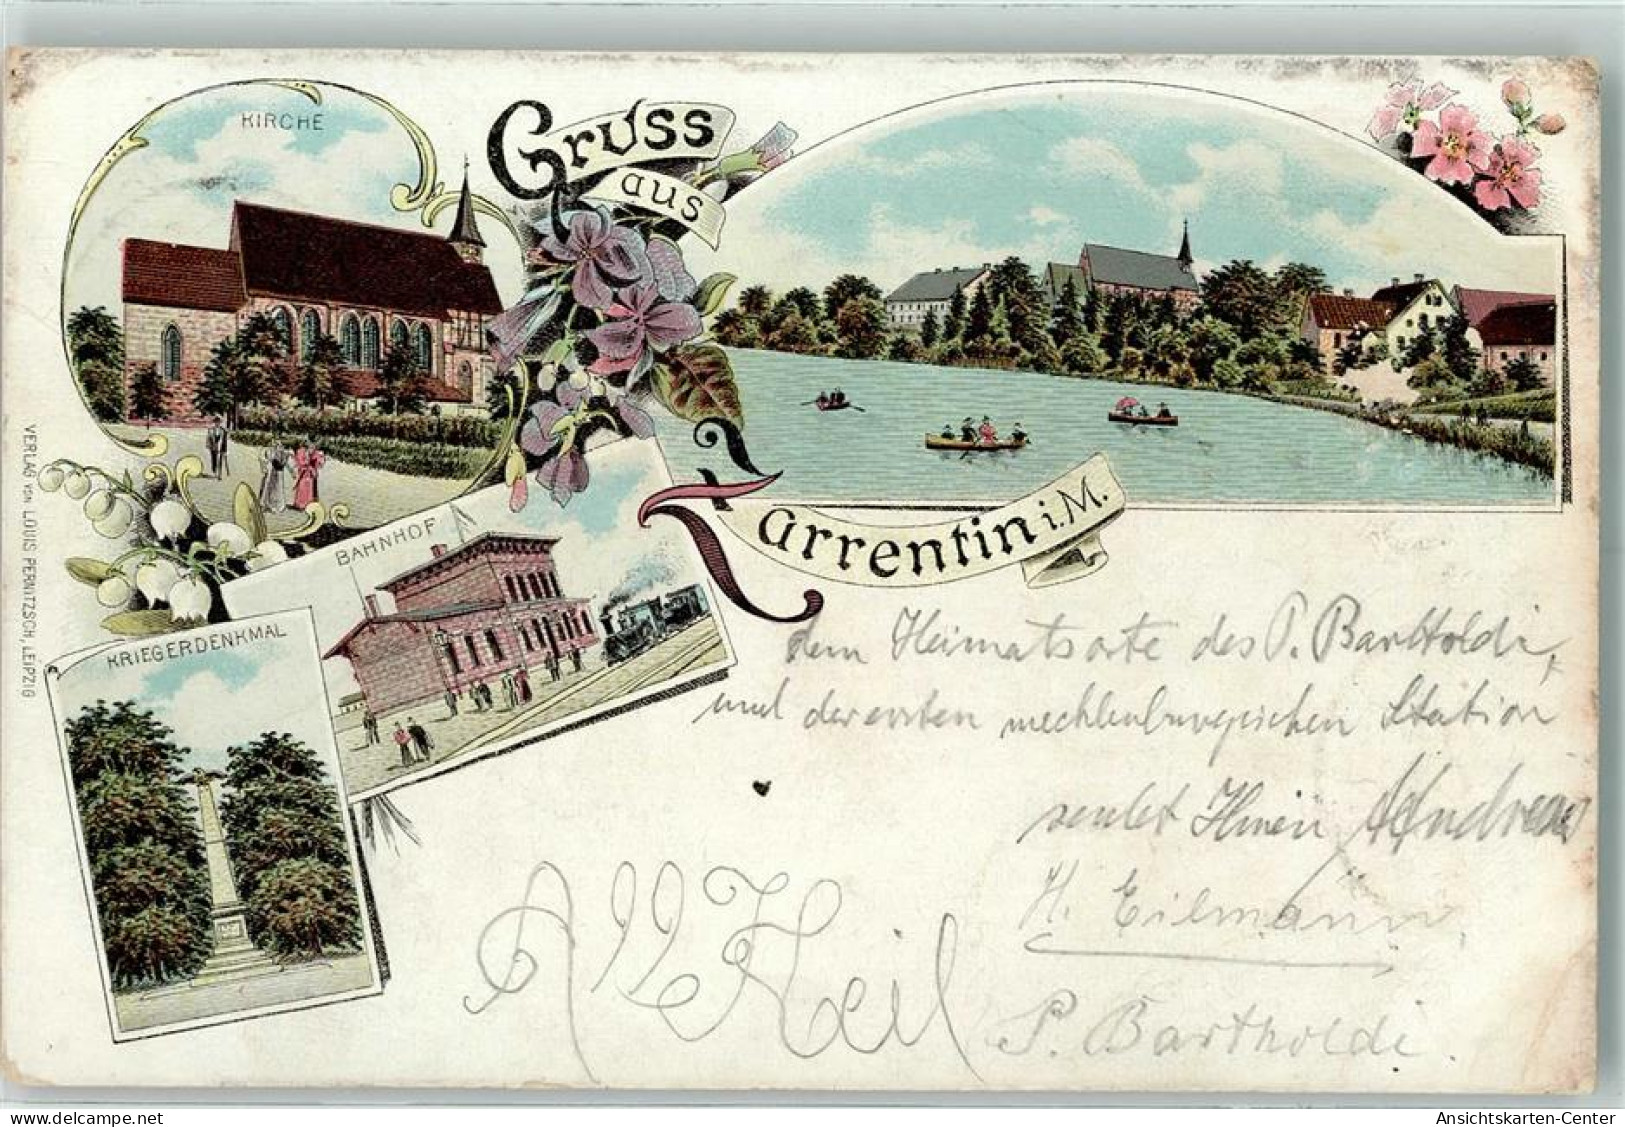 KIRCHE
Gruss
aus
Tarrentin i. M.
BAHNHOF
KRIEGERDENKMAL
VERLAG von LOUIS PERNITZSCH, LEIPZIG
dem Heimatsorte des P. Bartholdi,
und der ersten mecklenburgischen Station
sendet Ihnen Andreas
H. Eilmann
All Heil
P. Bartholdi.
© Ansichtskarten-Center
Ansichtskarten-Center